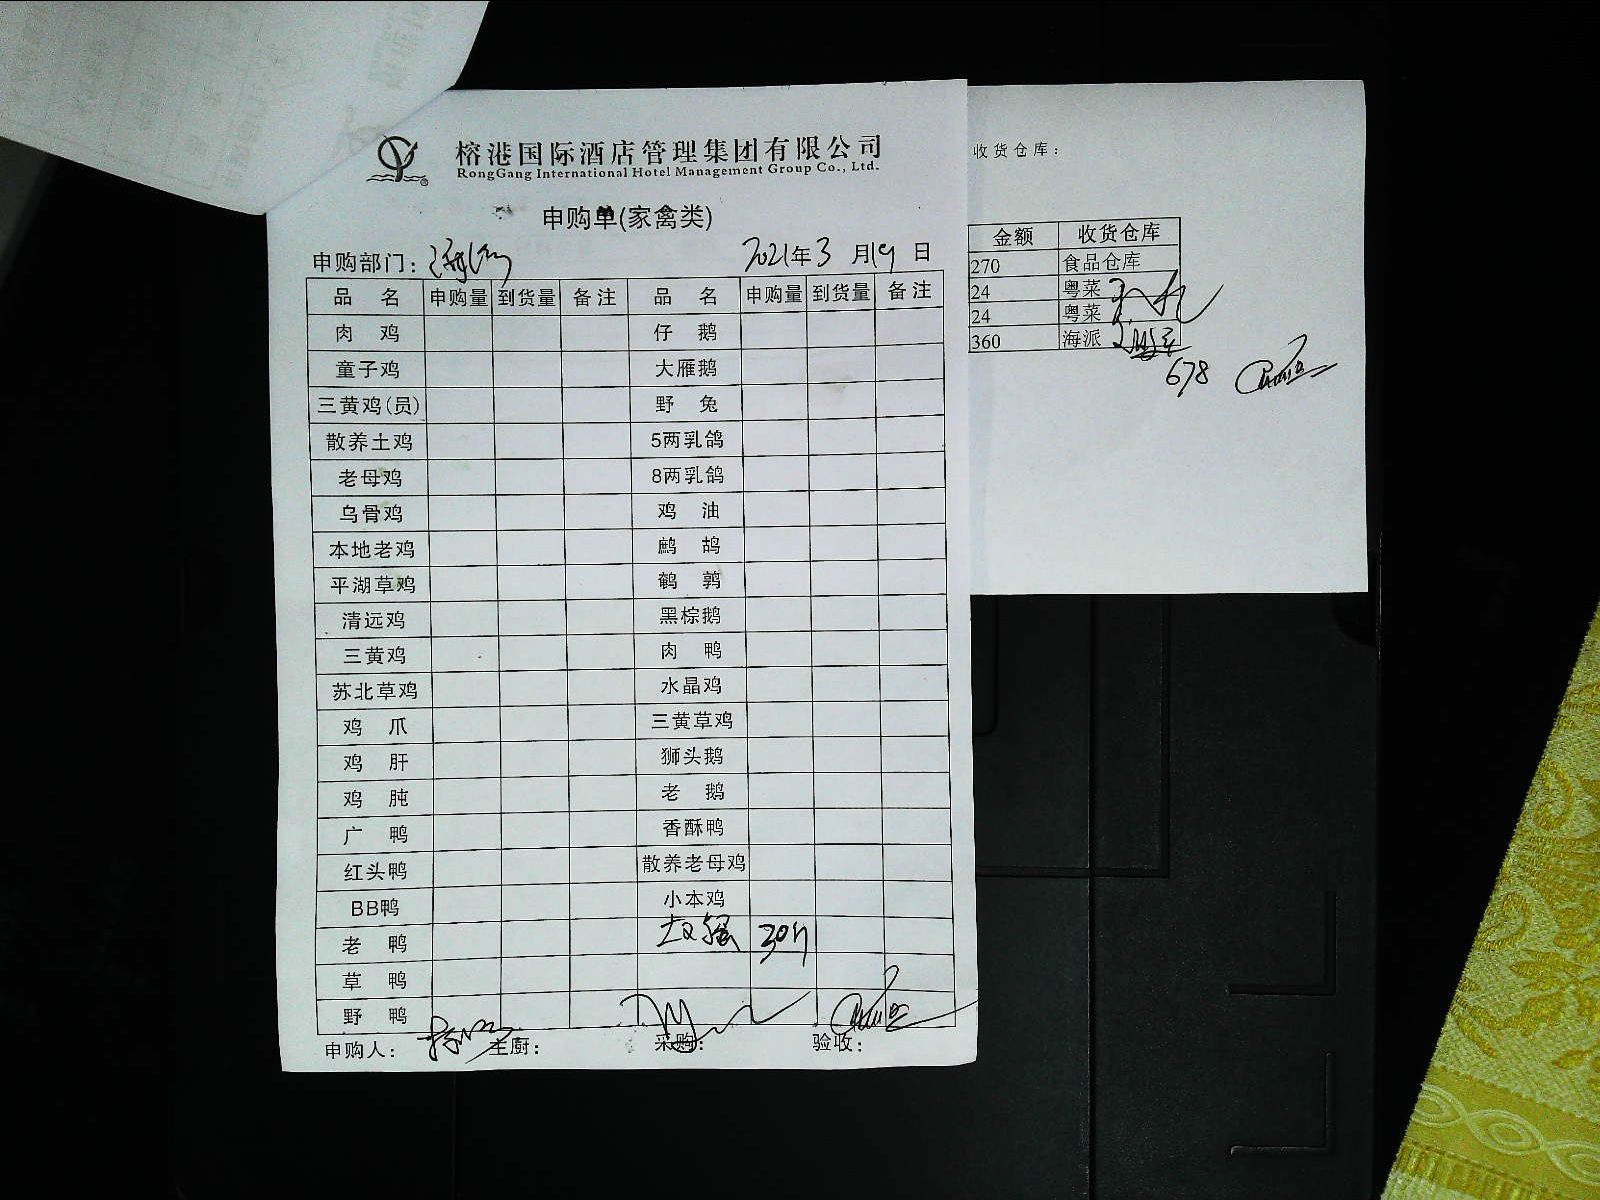 榕港国际酒店管理集团有限公司
RongGang International Hotel Management Group Co., Ltd.
申购单(家禽类)
申购部门:
2021年3月19日
品名 申购量 到货量 备注 品名 申购量 到货量 备注
肉鸡 仔鹅
童子鸡 大雁鹅
三黄鸡(员) 野兔
散养土鸡 5两乳鸽
老母鸡 8两乳鸽
乌骨鸡 鸡油
本地老鸡 鹧鸪
平湖草鸡 鹌鹑
清远鸡 黑棕鹅
三黄鸡 肉鸭
苏北草鸡 水晶鸡
鸡爪 三黄草鸡
鸡肝 狮头鹅
鸡肫 老鹅
广鸭 香酥鸭
红头鸭 散养老母鸡
BB鸭 小本鸡
老鸭 30斤
草鸭
野鸭
申购人: 主厨: 采购: 验收:
收货仓库:
金额 收货仓库
270 食品仓库
24 粤菜
24 粤菜
360 海派
678